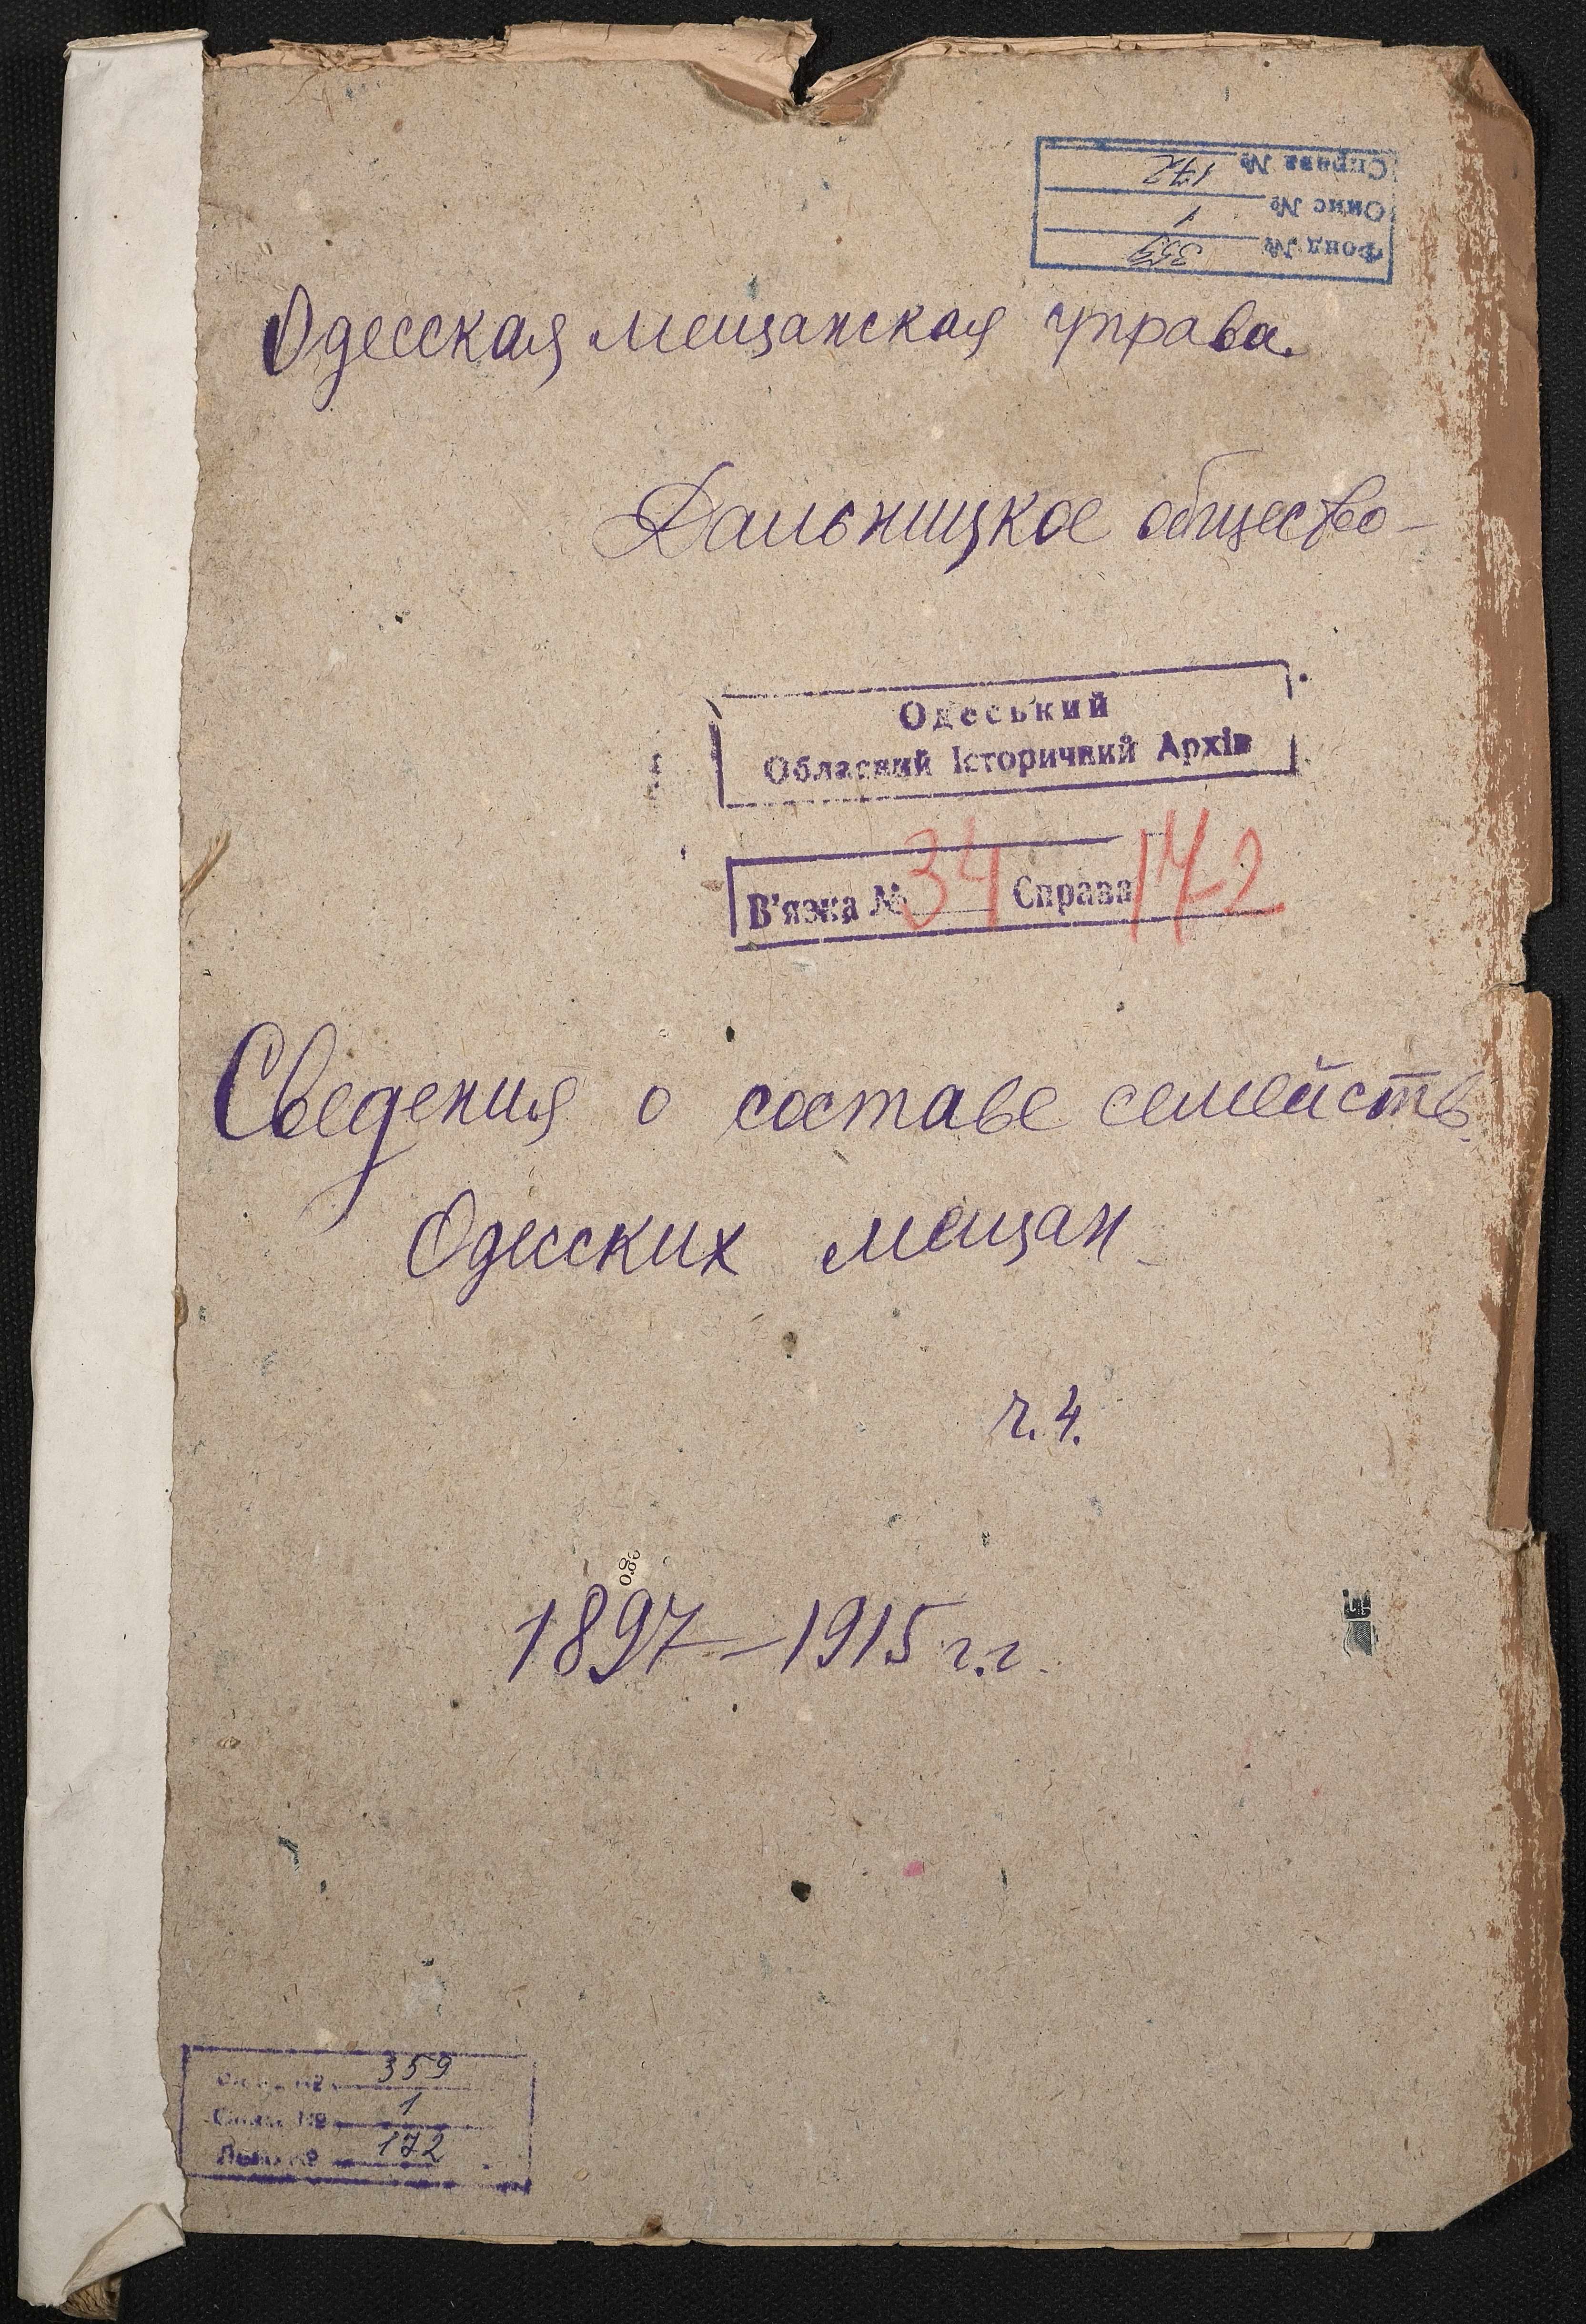 Справа № 172
Опис № 1
Фонд № 359
Одесская мещанская управа.
Дальницкое общество
Одеський
Обласний Історичний Архів
В'язка № 34 Справа 172
Сведения о составе семейств
Одесских мещан
ч. 4.
1897–1915 г.г.
359
1
172